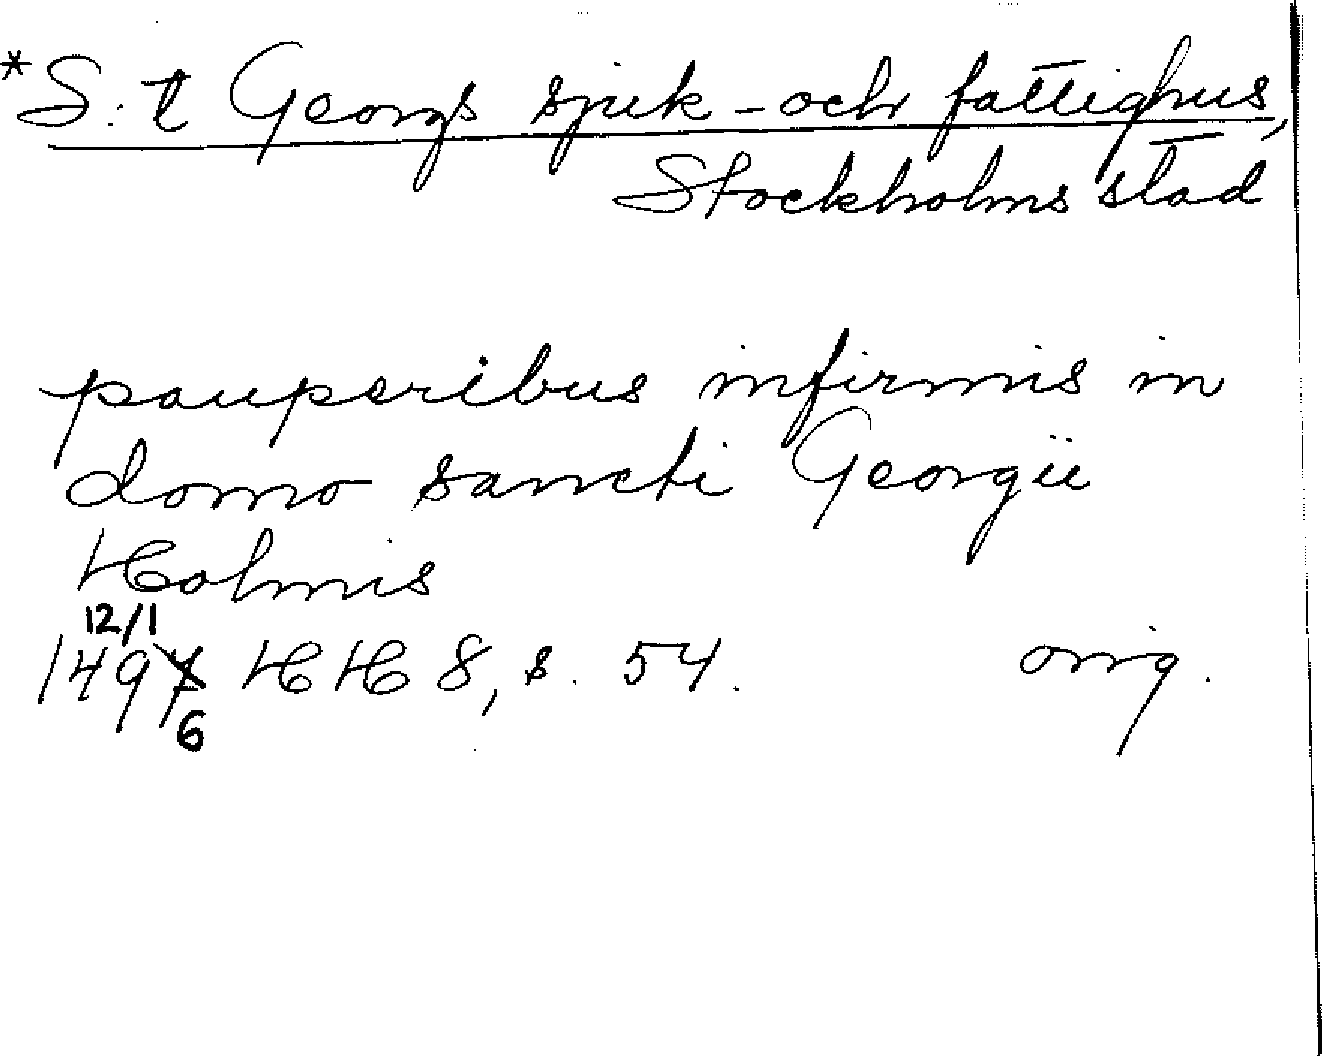 *S:t Georgs sjuk- och fattighus,
Stockholms stad
pauperibus infirmis in
domo sancti Georgii
Holmis
12/1
1496 HH 8, s. 54. orig.